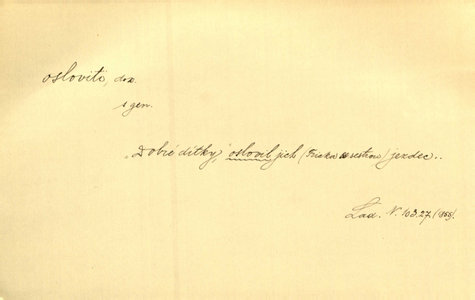 osloviti, dok.
s gen.
„Dobré dítky,‘ oslovil jich (Frická se sestrou) jezdec..
Lad. N. 103.27. (1855).